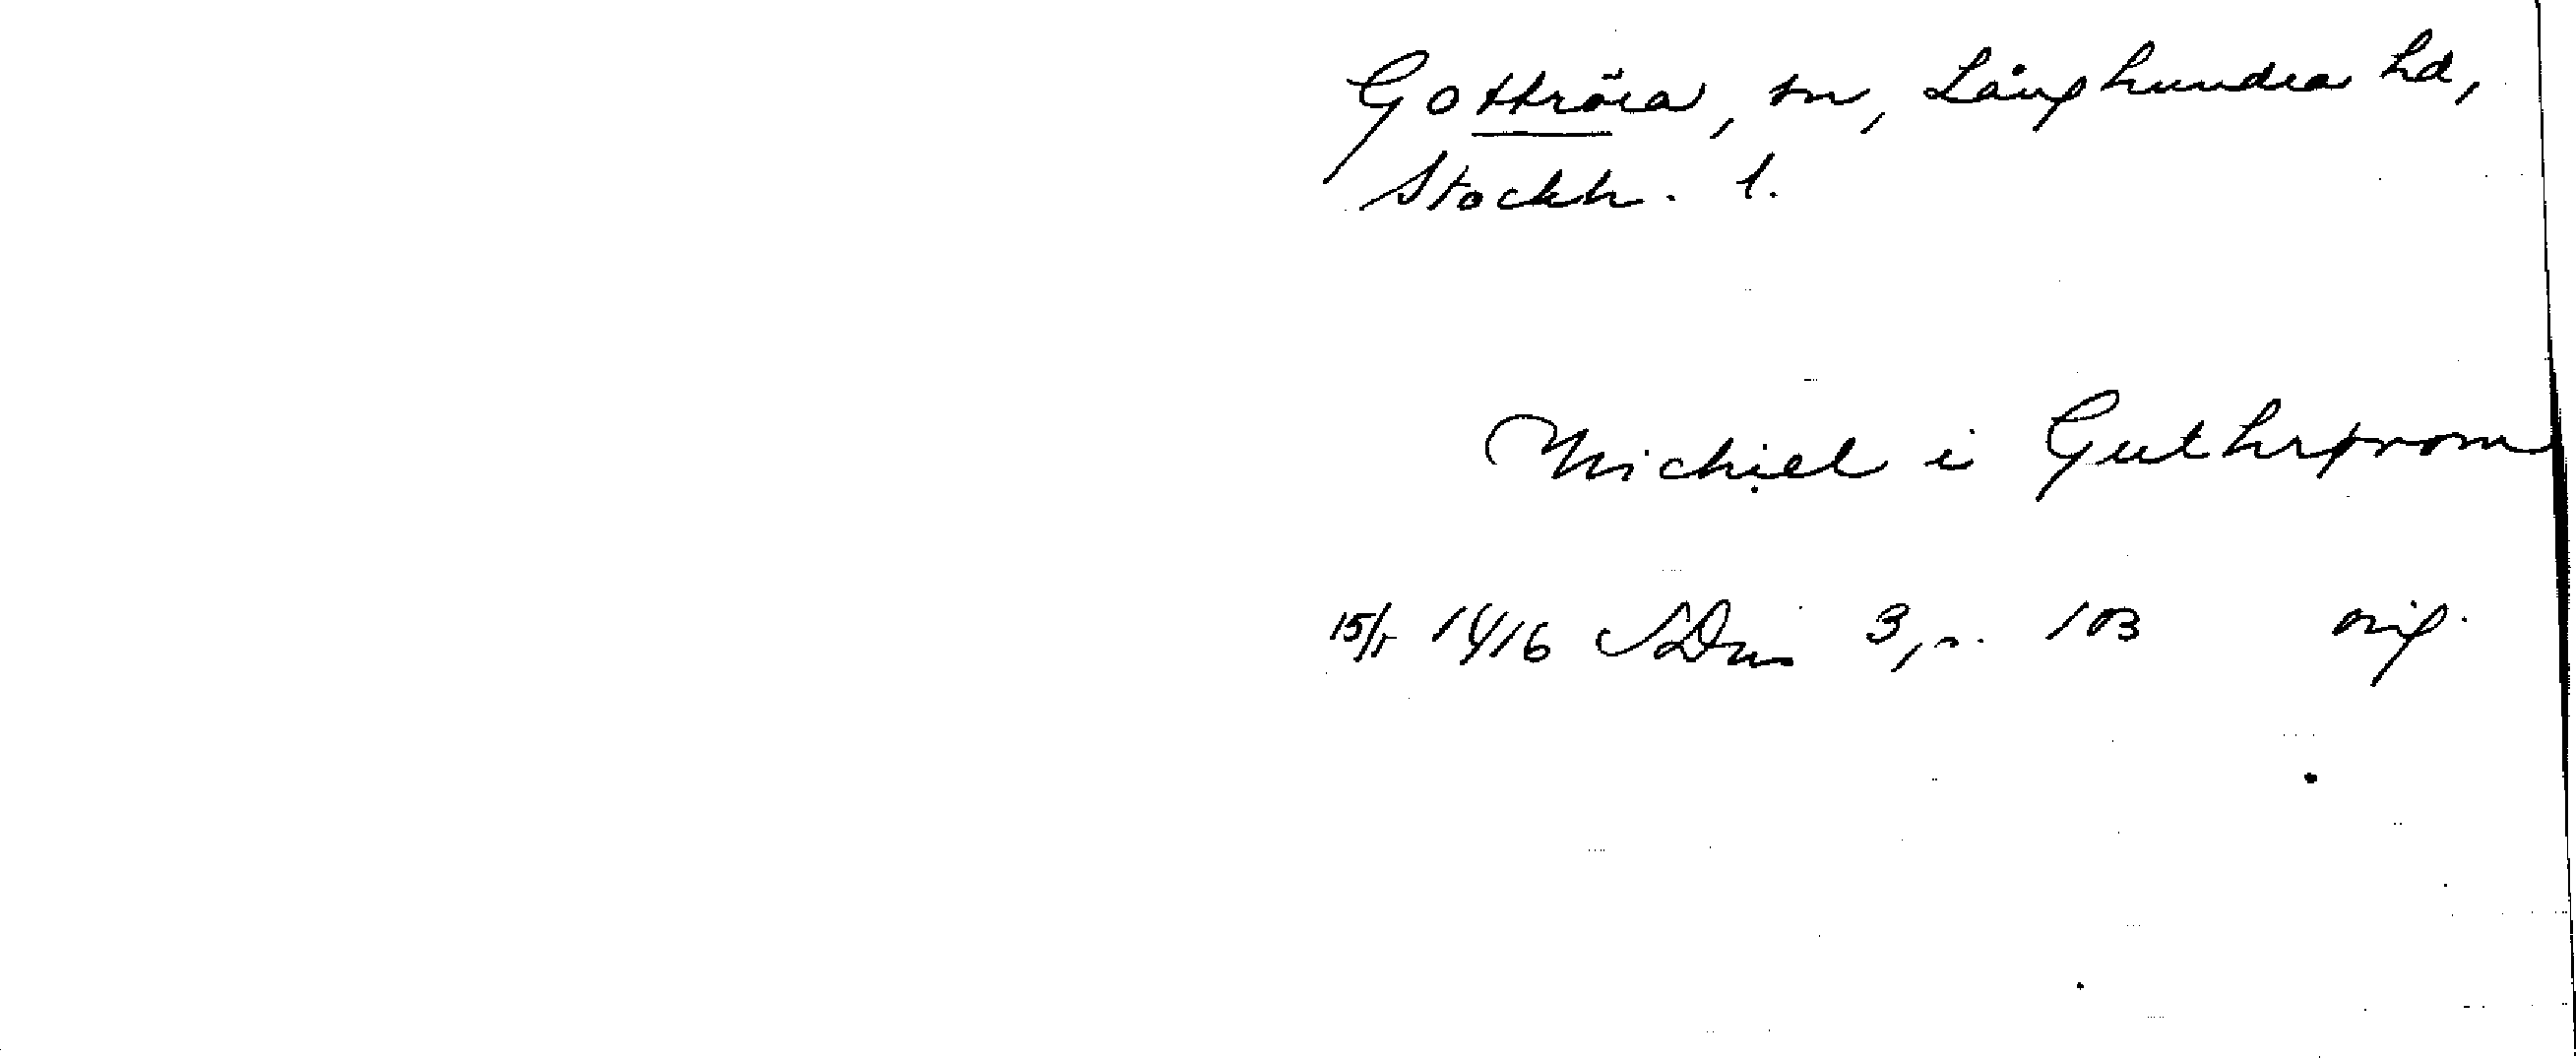 Gottröra, sn, Långhundra hd,
Stockh. l.
Michiel i Guthrprom
15/5 1416 SDns 3, s. 103 orig.